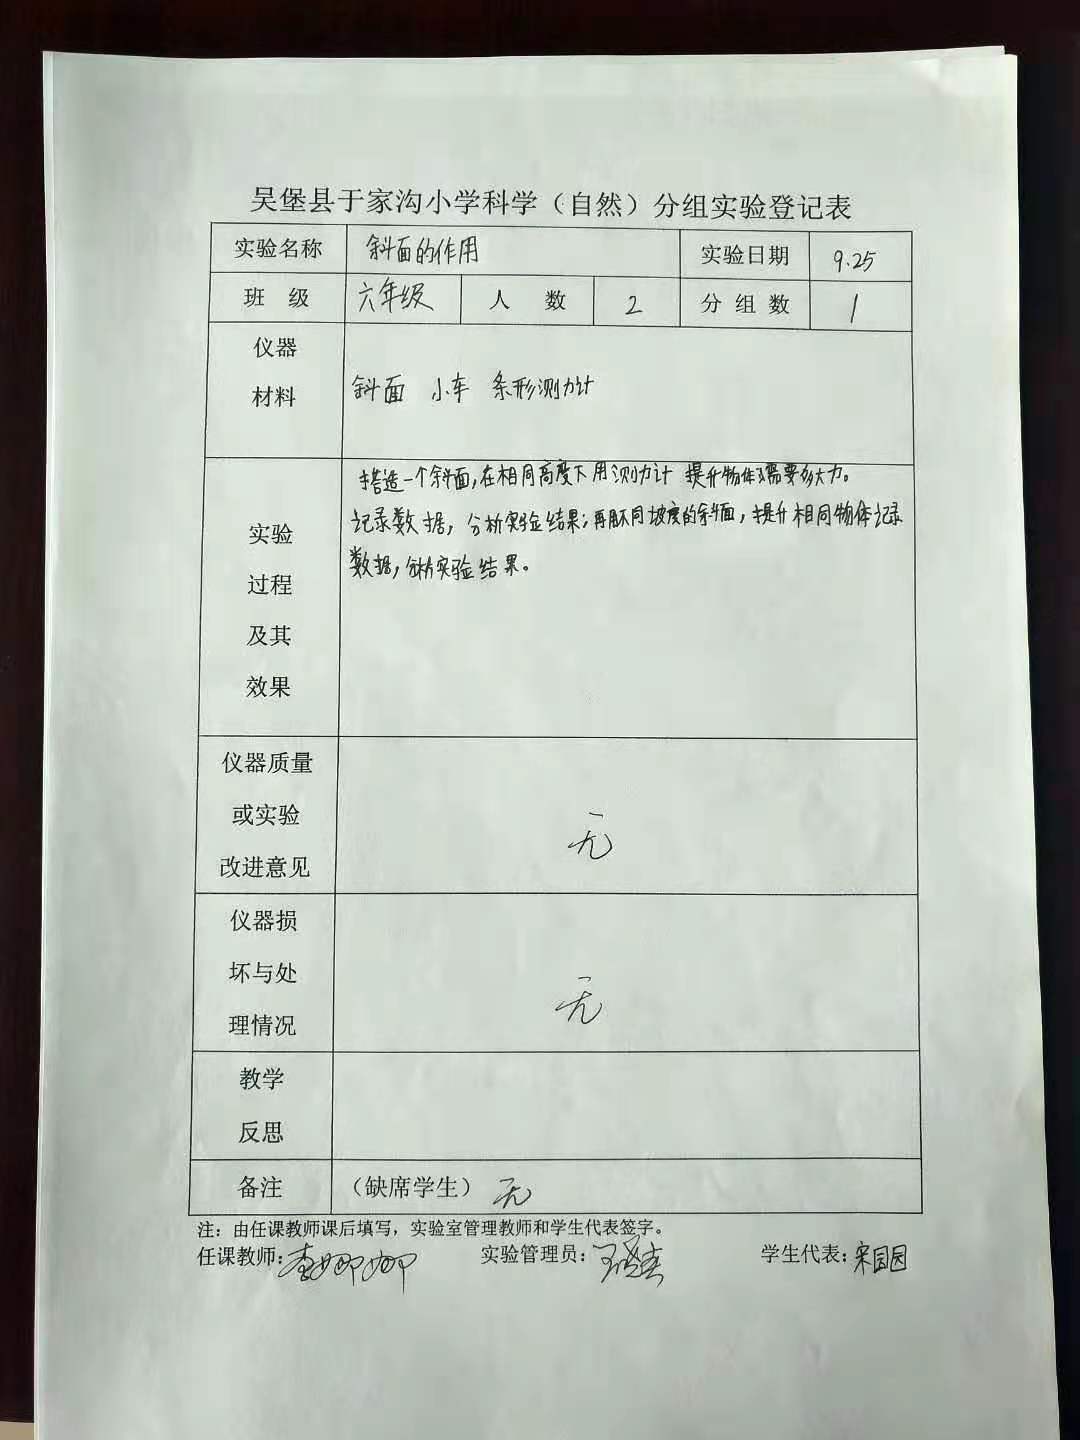 吴堡县于家沟小学科学（自然）分组实验登记表
实验名称 斜面的作用 实验日期 9.25
班 级 六年级 人 数 2 分 组 数 1
仪器
材料
斜面 小车 条形测力计
实验
过程
及其
效果
搭造一个斜面，在相同高度下用测力计 提升物体需要多大力。
记录数据，分析实验结果；再用不同坡度的斜面，提升相同物体记录
数据，分析实验结果。
仪器质量
或实验
改进意见
无
仪器损
坏与处
理情况
无
教学
反思
备注 （缺席学生） 无
注：由任课教师课后填写，实验室管理教师和学生代表签字。
任课教师： 实验管理员： 学生代表：宋园园